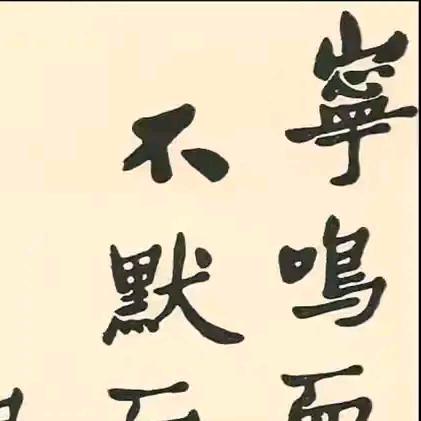 寧鳴而
不默而